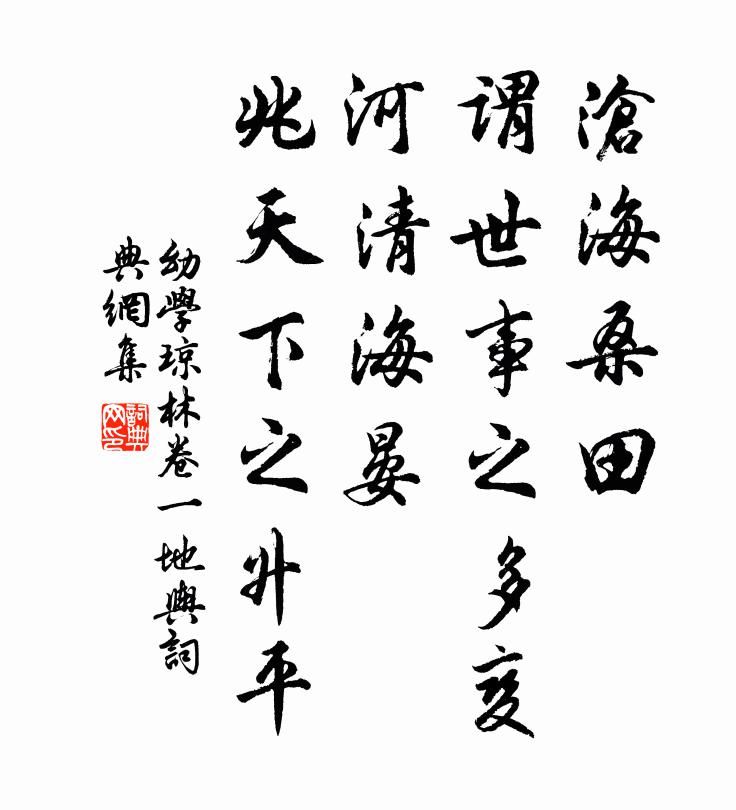 滄海桑田
謂世事之多変
河清海晏
兆天下之升平
幼學琼林卷一地輿詞
典網集
詞典
网印